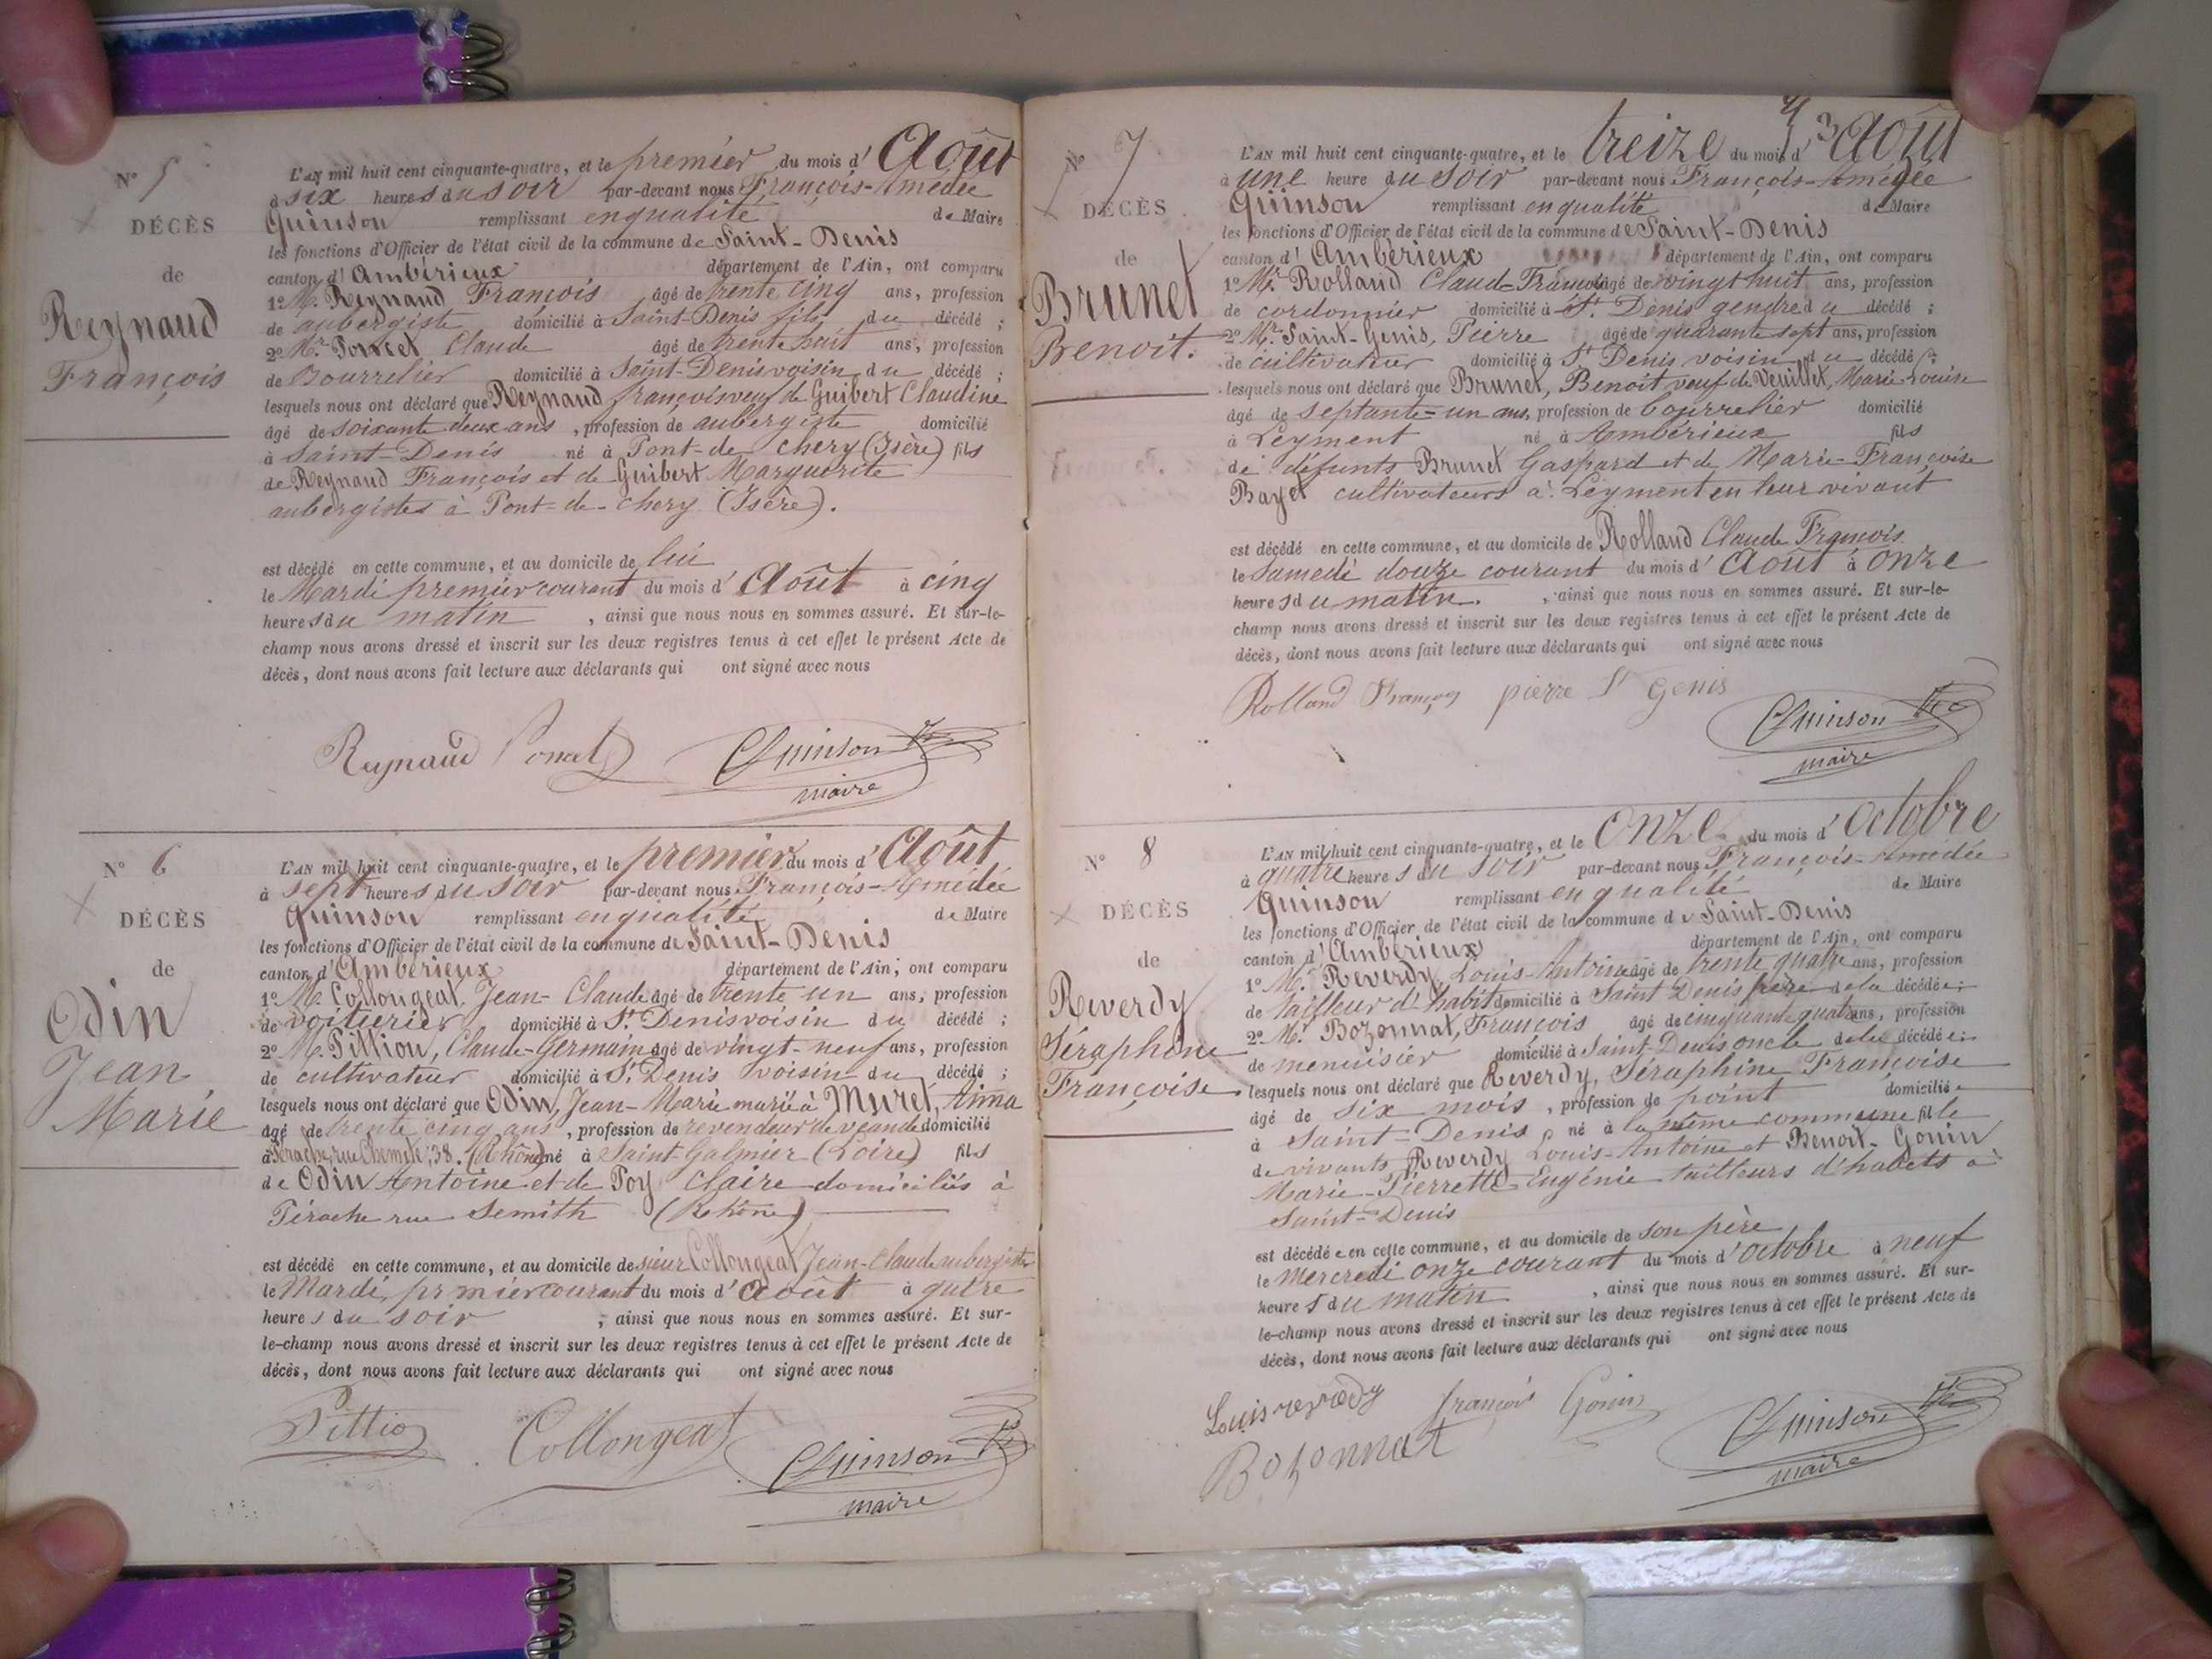 N° 5
DÉCÈS
de
Reynaud
François
L'AN mil huit cent cinquante-quatre, et le premier du mois d' Août
à six heures du soir par-devant nous François-Amédée
Quinson remplissant en qualité de Maire
les fonctions d'Officier de l'état civil de la commune de Saint-Denis
canton d' Ambérieux département de l'Ain, ont comparu
1° M. Reynaud François âgé de trente cinq ans, profession
de aubergiste domicilié à Saint-Denis fils du décédé ;
2° Mr. Claude âgé de trente huit ans, profession
de Bourrelier domicilié à Saint-Denis voisin du décédé ;
lesquels nous ont déclaré que Reynaud françois veuf de Guibert Claudine
âgé de soixante deux ans, profession de aubergiste domicilié
à Saint-Denis né à Pont-de chery (Isère) fils
de Reynaud François et de Guibert Marguerite
aubergistes à Pont-de-chery (Isère).
est décédé en cette commune, et au domicile de lui
le Mardi premier courant du mois d' Août à cinq
heures du matin, ainsi que nous nous en sommes assuré. Et sur-le-
champ nous avons dressé et inscrit sur les deux registres tenus à cet effet le présent Acte de
décès, dont nous avons fait lecture aux déclarants qui ont signé avec nous
Reynaud Quinson
maire
N° 6
DÉCÈS
de
Odin
Jean
Marie
L'AN mil huit cent cinquante-quatre, et le premier du mois d' Août
à sept heures du soir par-devant nous François-Amédée
Quinson remplissant en qualité de Maire
les fonctions d'Officier de l'état civil de la commune de Saint-Denis
canton d' Ambérieux département de l'Ain, ont comparu
1° M. Collongeat, Jean-Claude âgé de trente un ans, profession
de voiturier domicilié à St. Denis voisin du décédé ;
2° M. Pittion, Claude-Germain âgé de vingt-neuf ans, profession
de cultivateur domicilié à St. Denis voisin du décédé ;
lesquels nous ont déclaré que Odin, Jean-Marie marié à Muret, Anna
âgé de trente cinq ans, profession de revendeur de domicilié
à rue 38. (Rhône) né à Saint Galmier (Loire) fils
de Odin Antoine et de Poy Claire domiciliés à
Pérache rue Semith (Rhône)
est décédé en cette commune, et au domicile de sieur Collongeat Jean-Claude aubergiste
le Mardi, prmier courant du mois d' Août à qutre
heures du soir ; ainsi que nous nous en sommes assuré. Et sur-
le-champ nous avons dressé et inscrit sur les deux registres tenus à cet effet le présent Acte de
décès, dont nous avons fait lecture aux déclarants qui ont signé avec nous
Pittion Collongeat Quinson
maire
N° 7
DÉCÈS
de
Brunet
Benoit.
L'AN mil huit cent cinquante-quatre, et le treize du mois d' Août
à une heure du soir par-devant nous François-Amédée
Quinson remplissant en qualité de Maire
les fonctions d'Officier de l'état civil de la commune de Saint-Denis
canton d' Ambérieux département de l'Ain, ont comparu
1° Mr. Rolland Claude-François âgé de vingt huit ans, profession
de cordonnier domicilié à St. Denis gendre du décédé ;
2° Mr. Saint-Genis, Pierre âgé de quarante sept ans, profession
de cultivateur domicilié à St Denis voisin du décédé ;
lesquels nous ont déclaré que Brunet, Benoit veuf de Veuillet, Marie-Louise
âgé de septante-un ans, profession de bourrelier domicilié
à Leyment né à Ambérieux fils
de défunts Brunet Gaspard et de Marie-Françoise
Bayet cultivateurs à Leyment en leur vivant
est décédé en cette commune, et au domicile de Rolland Claude François
le Samedi douze courant du mois d' Août à onze
heures du matin. , ainsi que nous nous en sommes assuré. Et sur-le-
champ nous avons dressé et inscrit sur les deux registres tenus à cet effet le présent Acte de
décès, dont nous avons fait lecture aux déclarants qui ont signé avec nous
Rolland François pierre St Genis Quinson
maire
N° 8
DÉCÈS
de
Reverdy
Séraphine
Françoise.
L'AN mil huit cent cinquante-quatre, et le onze du mois d' octobre
à quatre heures du soir par-devant nous François-Amédée
Quinson remplissant en qualité de Maire
les fonctions d'Officier de l'état civil de la commune de Saint-Denis
canton d' Ambérieux département de l'Ain, ont comparu
1° Mr. Reverdy, Louis-Antoine âgé de trente quatre ans, profession
de tailleur d'habits domicilié à Saint Denis père de la décédée ;
2° Mr. Bozonnat, François âgé de cinquante quatre ans, profession
de menuisier domicilié à Saint-Denis oncle de la décédée ;
lesquels nous ont déclaré que Reverdy, Séraphine Françoise
âgé de six mois, profession de point domiciliée
à Saint-Denis, né à la même commune fille
de vivants Reverdy Louis-Antoine et Benoit-Gonin
Marie-Pierrette Eugénie tailleurs d'habits à
Saint-Denis
est décédée en cette commune, et au domicile de son père
le mercredi onze courant du mois d' octobre à neuf
heures du matin , ainsi que nous nous en sommes assuré. Et sur-
le-champ nous avons dressé et inscrit sur les deux registres tenus à cet effet le présent Acte de
décès, dont nous avons fait lecture aux déclarants qui ont signé avec nous
Luis reverdy françois Gonin Quinson
Bozonnat maire